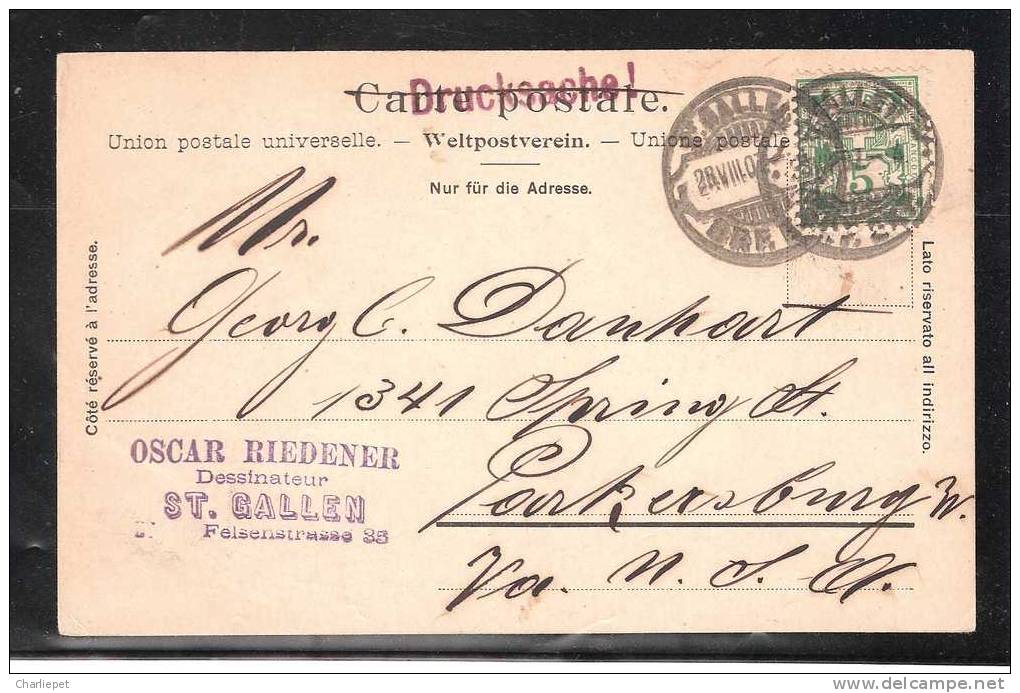 Drucksache!
Carte postale.
Union postale universelle. — Weltpostverein. — Unione postale
Nur für die Adresse.
28.VIII.0
5
Côté réservé à l'adresse.
Lato riservato all indirizzo.
Mr.
Georg C. Danhart
1341 Spring St.
Parkersburg W.
Va. U. S. A.
OSCAR RIEDENER
Dessinateur
ST. GALLEN
Felsenstrasse 35
Charliepet
www.delcampe.net